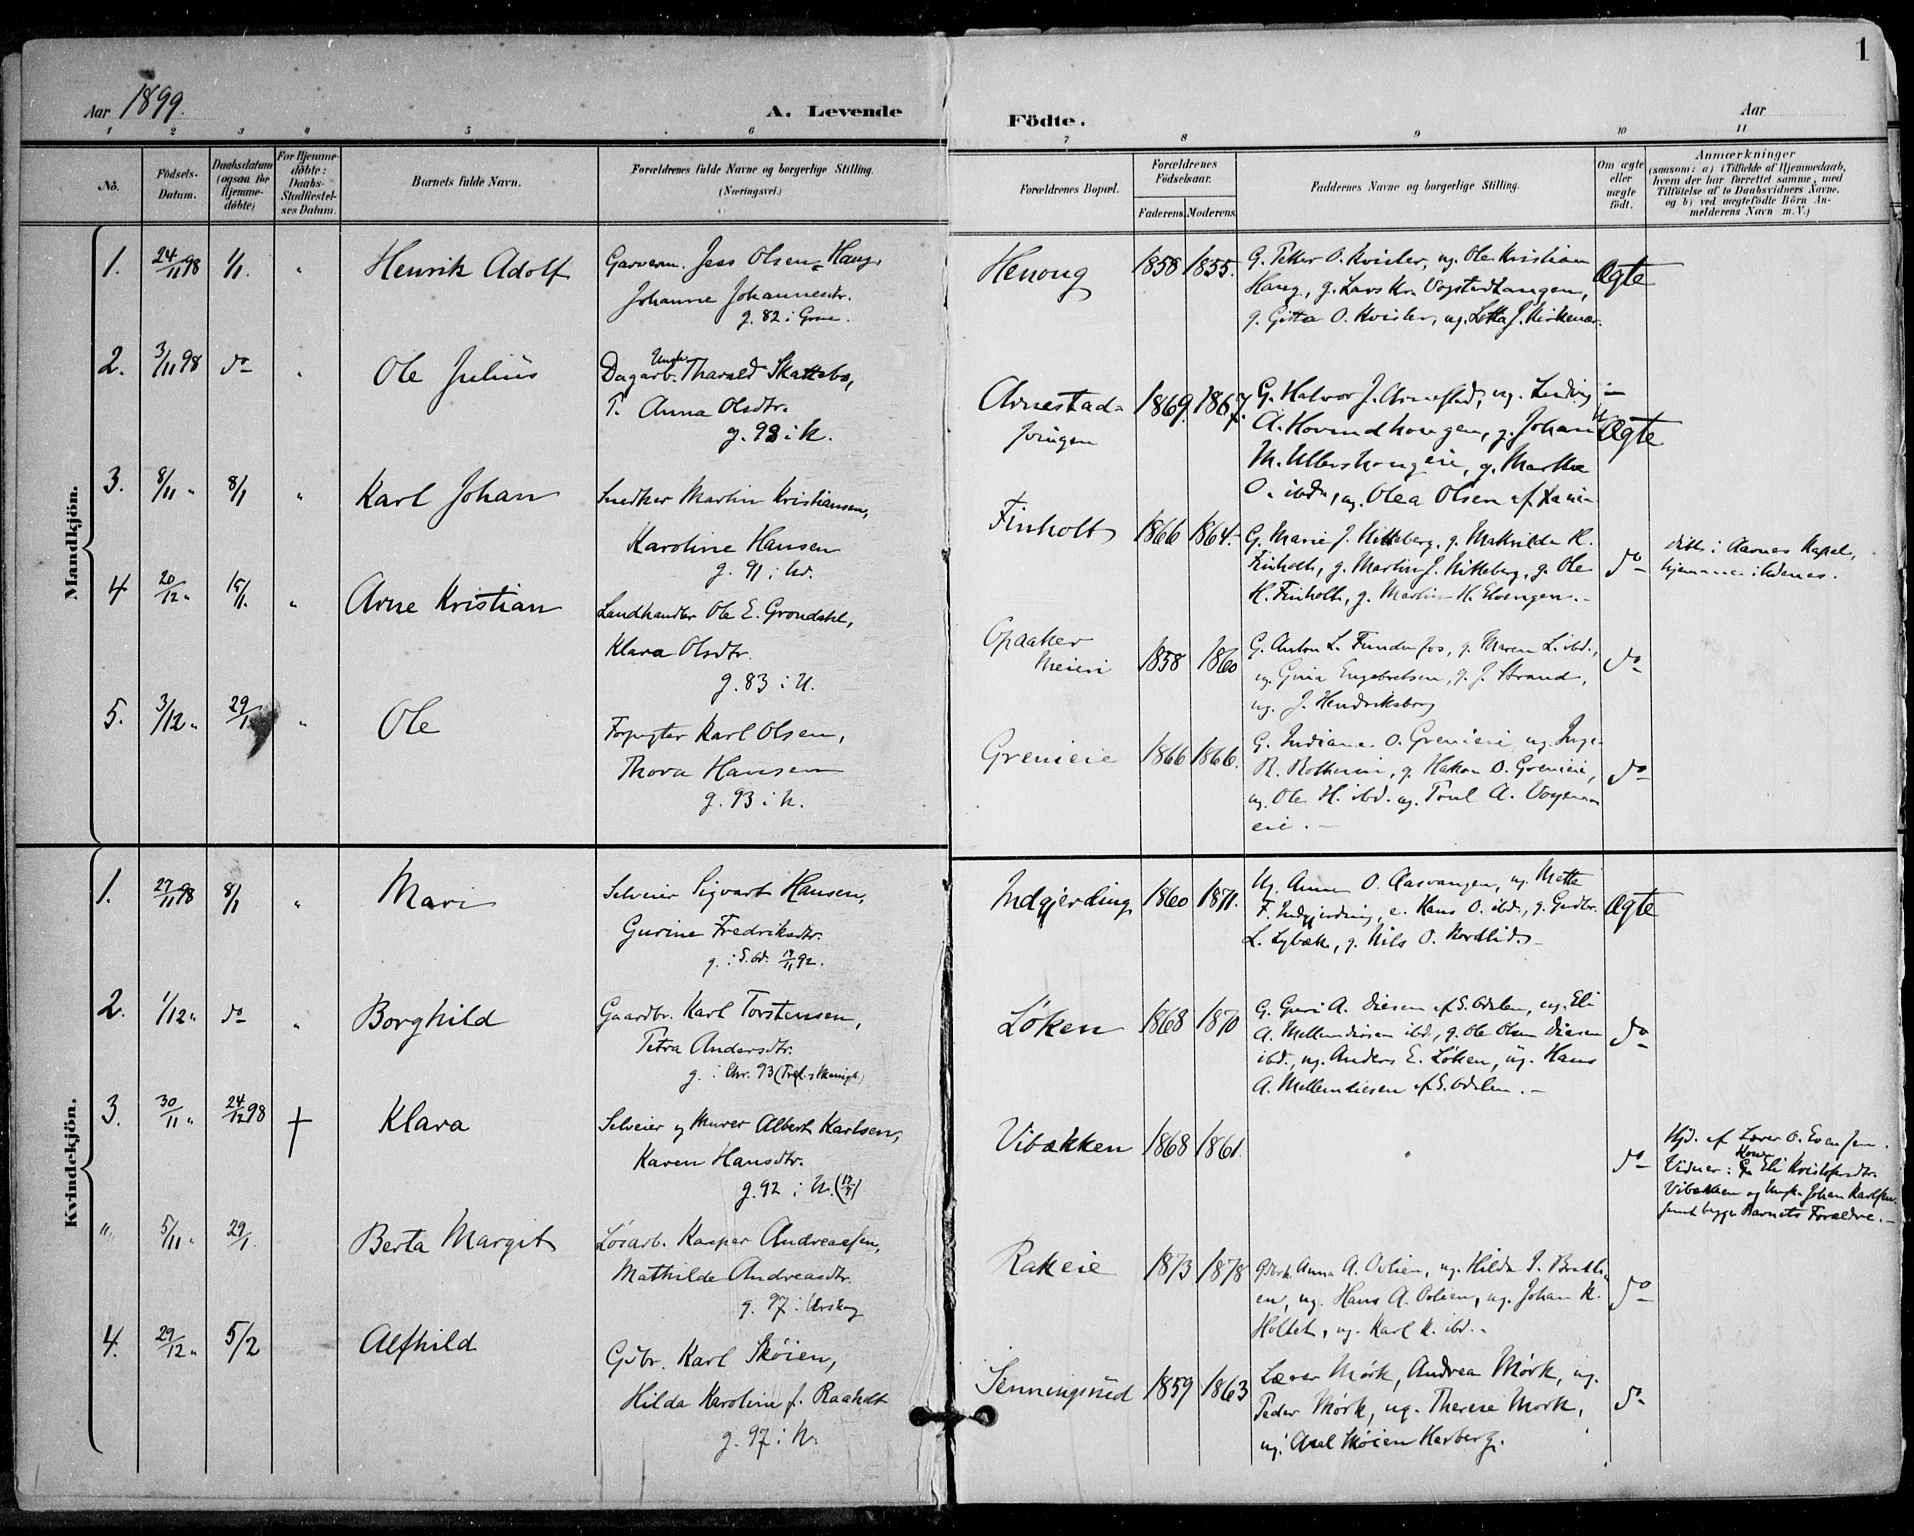 1
Aar 1899.
A. Levende Födte.
Aar
1 2 3 4 5 6 7 8 9 10 11
No.
Födsels-Datum.
Daabsdatum (ogsaa for Hjemme-döbte)
For Hjemme-döbte: Daabs-Stadfæstel-ses Datum.
Barnets fulde Navn.
Forældrenes fulde Navne og borgerlige Stilling.
(Næringsvei.)
Forældrenes Bopæl.
Forældrenes Födselsaar.
Faderens. Moderens.
Faddernes Navne og borgerlige Stilling.
Om ægte eller uægte födt.
Anmærkninger
(saasom: a) i Tilfælde af Hjemmedaab,
hvem der har forrettet samme, med
Tilföielse af to Daabsvidners Navne.
og b) ved uægtefödte Börn An-
melderens Navn m. V.)
Mandkjön.
1. 24/11 98 1/1. " Henrik Adolf
Garverm. Jess Olsen Haug,
Johanne Johannesdtr.
g. 82 i Grue.
Henoug 1858 1855.
G. Petter O. Kvisler, ug. Ole Kristian
Haug, g. Lars Kr. Vogstadhaugen,
g. Gitta O. Kvisler, ug. Lotta J. Kirkenær.
Ægte
2. 3/11 98 do " Ole Julius
Ungk.
Dagarb. Tharald Skattebo,
P. Anna Olsdtr.
g. 98 i N.
Arnestad-
svingen
1869. 1867.
G. Halvor J. Arnestad, ug. Ludvig
A. Hovindhaugen, g. Johan
M. Ullershaugeie, g. Marthe
O. ibd., ug. Olea Olsen af
Ægte
3. 8/11 " 8/1 " Karl Johan
Snedker Martin Kristiansen,
Karoline Hansen
g. 91 i
Finholt 1866 1864.
G. Marie J. Nitteberg, g. Mathilde H.
Finholt, g. Martin J. Nitteberg, g. Ole
H. Finholt, g. Martin H. Elvengen.
do
Døbt i Aarnes Kapel,
4 20/12 " 15/1. " Arne Kristian
Landhandler Ole E. Grøndahl,
Klara Olsdtr.
g. 83 i N.
Opaaker
Meieri
1858 1860
G. Anton L. Fundefos, g. Maren L. ibd.,
ug. Gina Engebretsen, g. J. Strand,
ug. J. Hendriksberg
do
5. 3/12 " 29/1 " Ole
Forpagter Karl Olsen,
Thora Hansen
g. 93 i N.
Grenieie 1866 1866.
G. Indiane O. Grenieie, ug. Inge
R. g. Hakon O. Grenieie,
ug. Ole H. ibd. ug. Poul A. Vogen
eie.
do
Kvindekjön.
1. 27/11 98 8/1 " Mari
Selveier Sigvart Hansen,
Gurine Fredriksdtr.
g. i S. Od. 92.
Indgjerding 1860 1871.
Ug. Anne O. Aasvangen, ug. Mette
F. Indgjerding, e. Hans O. ibd., g. Gudbr.
L. Lybæk, g. Nils O. Nordlid.
Ægte
2. 1/12 " do " Borghild
Gaardbr. Karl Torstensen,
Petra Andersdtr.
g. i Chr. 93
Løken 1868 1870
G. Guri A. Diesen af S. Odalen, ug. Eli
A. Mellemdiesen ibd., g. Ole Olsen Diesen
ibd., ug. Anders E. Løken, ug. Hans
A. Mellemdiesen af S. Odalen.
do
3. 30/11 " 24/12 98 † Klara
Selveier og Murer Albert Karlsen,
Karen Hansdtr.
g. 92 i N.
Vibækken 1868 1861. "
do
Hjd. af Lærer O. Evensen.
Vidner: Kone Eli Kristofersdtr.
Vibækken og Ungk. Johan Karlsen
samt begge Barnets Forældre.
" 5/11 " 29/1. Berta Margit
Løsarb. Kasper Andreassen,
Mathilde Andreasdtr.
g. 97 i Urskog
Rakeie 1873 1878
Anna A. Ovlien, ug. Hilda
en, ug. Hans A. Ovlien, ug. Johan K.
Holtet, ug. Karl K. ibd.
do
4. 29/12 " 5/2 Alfhild
Gbr. Karl Skøien,
Hilda Karoline f. Raaholt
g. 97 i N.
Henningsrud 1859 1863
Lærer Mørk, Andrea Mørk, ug.
Peder Mørk, ug. Therese Mørk,
ug. Axel Skøien Herberg.
do